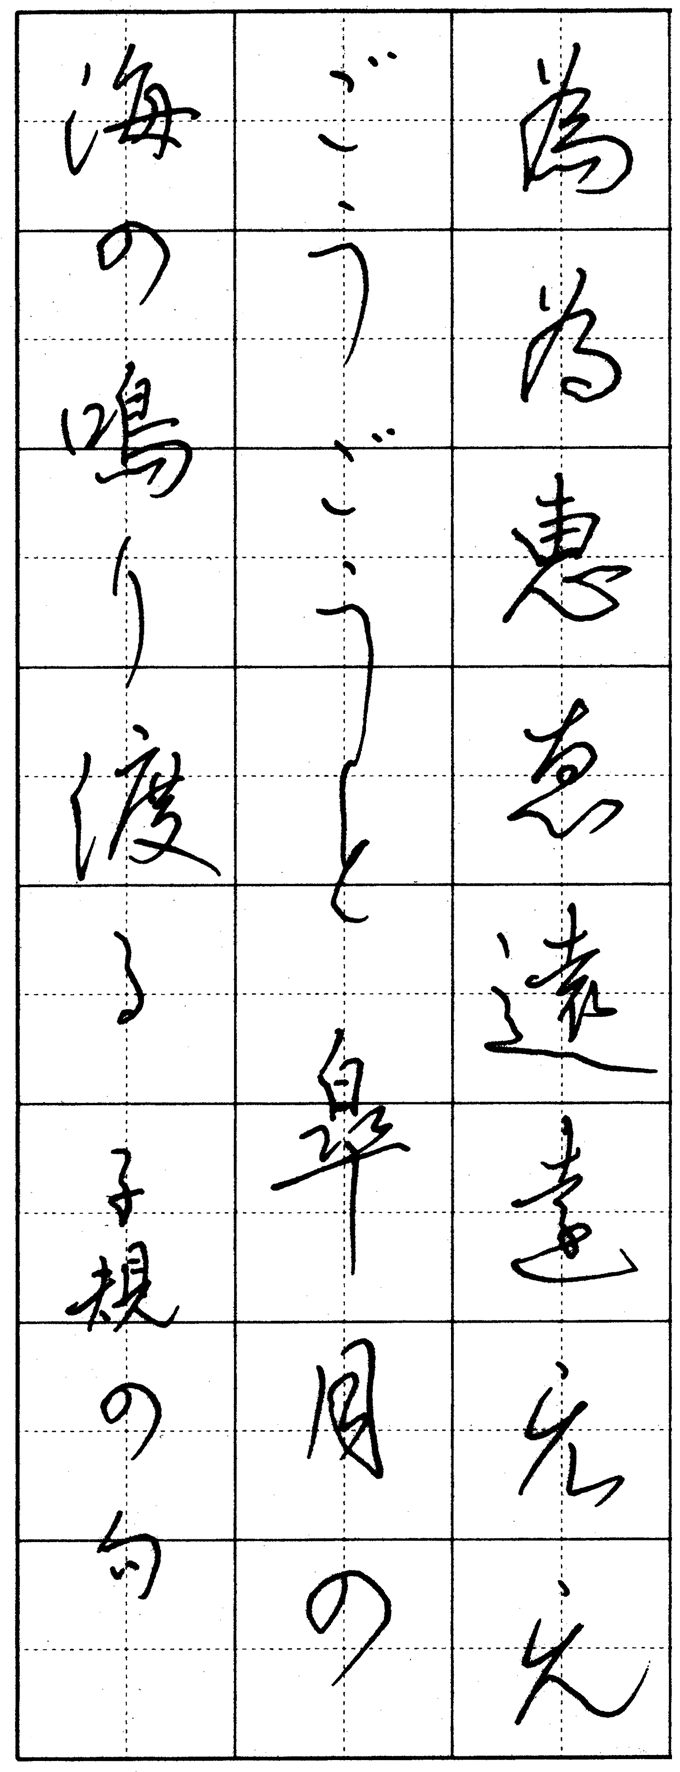 為為恵恵遠遠衣衣
ごうごうと皐月の
海の鳴り渡る子規の句